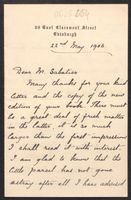 26 East Claremont Street
Edinburgh
22nd May 1906
Dear Mr. Sabatier
Many thanks for your kind
letter and the copy of the new
edition of your book. There must
be a great deal of fresh matter
in the latter, it is so much
larger than the first impression
I shall read it with interest.
I am glad to know that the
little parcel has not gone
astray after all. I have advised